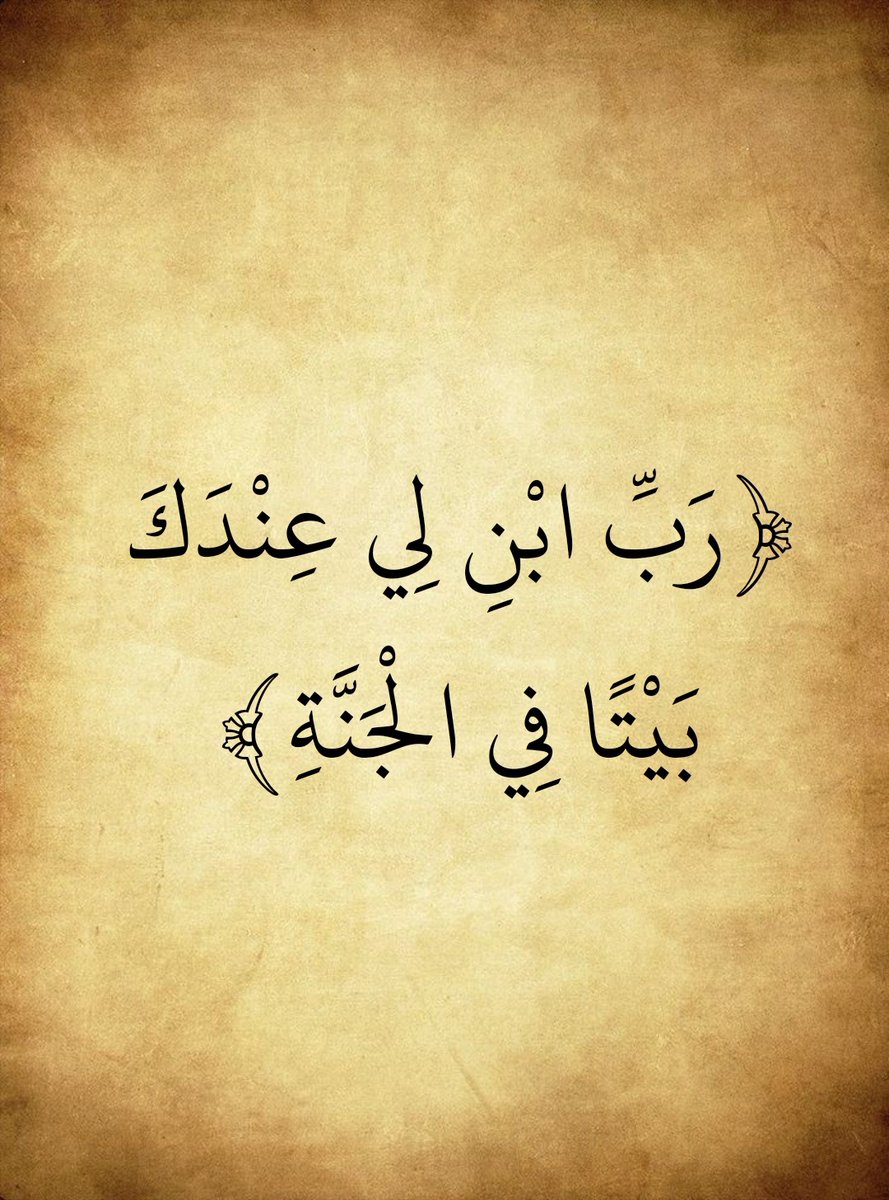 ﴿رَبِّ ابْنِ لِي عِنْدَكَ
بَيْتًا فِي الْجَنَّةِ﴾